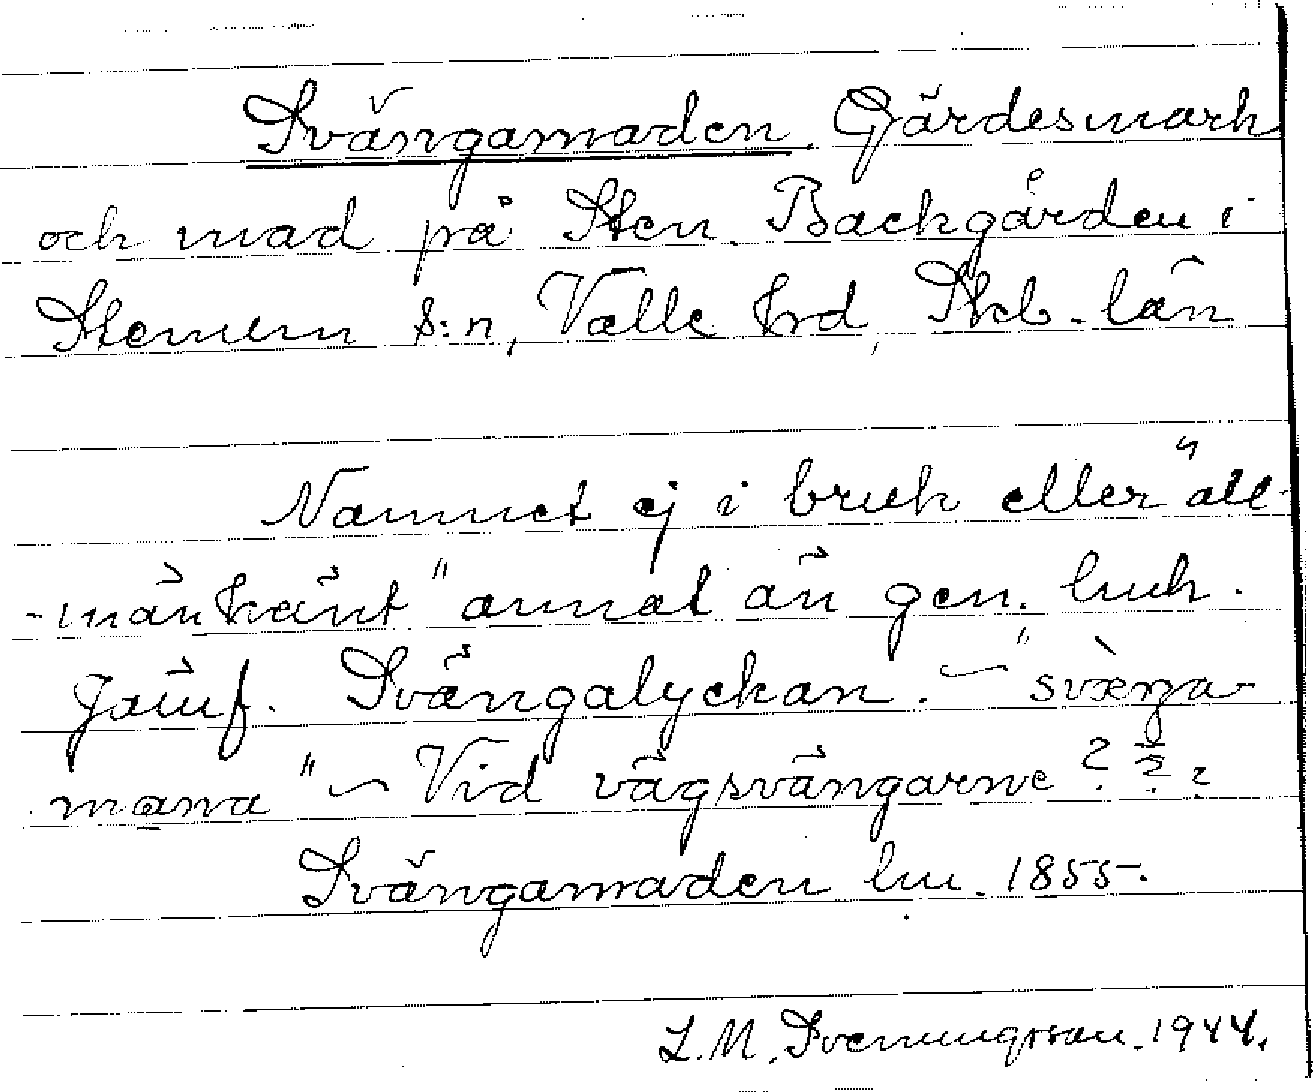 Svängamaden. Gärdesmark
och mad på Sten. Backgården i
Stenum s:n, Valle hrd, Skb. län
Namnet ej i bruk eller "all-
-mänkänt" annat än gen. luk.
Jämf. Svängalyckan. — "svænga-
mana" — Vid vägsvängarne ? ? ?
Svängamaden lm. 1855.
L.M. Svenungsson. 1944.